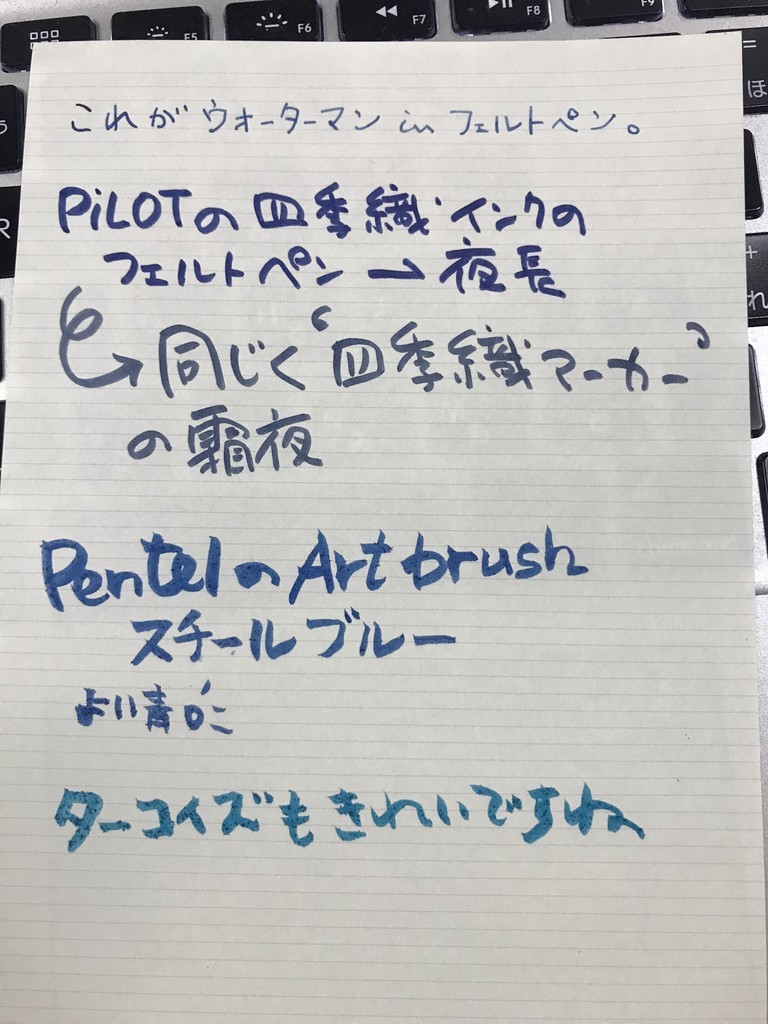 F5
F6
F7
F8
F9
これがウォーターマン in フェルトペン。
PiLOTの四季織インクの
フェルトペン→夜長
→同じく“四季織マーカー”
の霜夜
PentelのArt brush
スチールブルー
よい青
ターコイズもきれいですね
R
=
ほ
+
れ